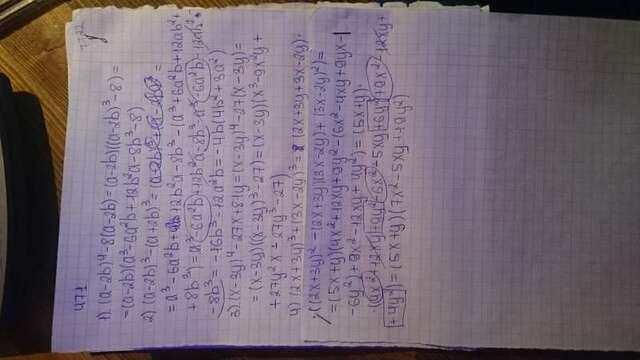 471
1) (a-2b)⁴-8(a-2b)=(a-2b)((a-2b)³-8)=
=(a-2b)(a³-6a²b+12b²a-8b³-8)
2) (a-2b)³-(a+2b)³=
=a³-6a²b+12b²a-8b³-(a³+6a²b+12ab²+
+8b³)=a³-6a²b+12b²a-8b³-a³-6a²b-12ab²-
-8b³=-16b³-12a²b=-4b(4b²+3a²)
3) (x-3y)⁴-27x+81y=(x-3y)⁴-27(x-3y)=
=(x-3y)((x-3y)³-27)=(x-3y)(x³-9x²y+
+27y²x-27y³-27)
4) (2x+3y)³+(3x-2y)³=(2x+3y+3x-2y)·
·((2x+3y)²-(2x+3y)(3x-2y)+(3x-2y)²)=
=(5x+y)(4x²+12xy+9y²-(6x²-4xy+9yx-
-6y²)+9x²-12xy+4y²)=(5x+y)·
·(4x²+12xy+9y²-6x²-5xy+6y²+9x²-12xy+
+4y²)=(5x+y)(7x²-5xy+19y²)